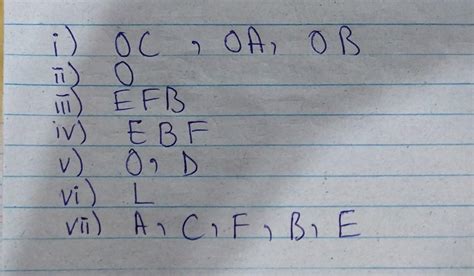 i) OC , OA, OB
ii) O
iii) EFB
iv) EBF
v) O, D
vi) L
vii) A, C, F, B, E